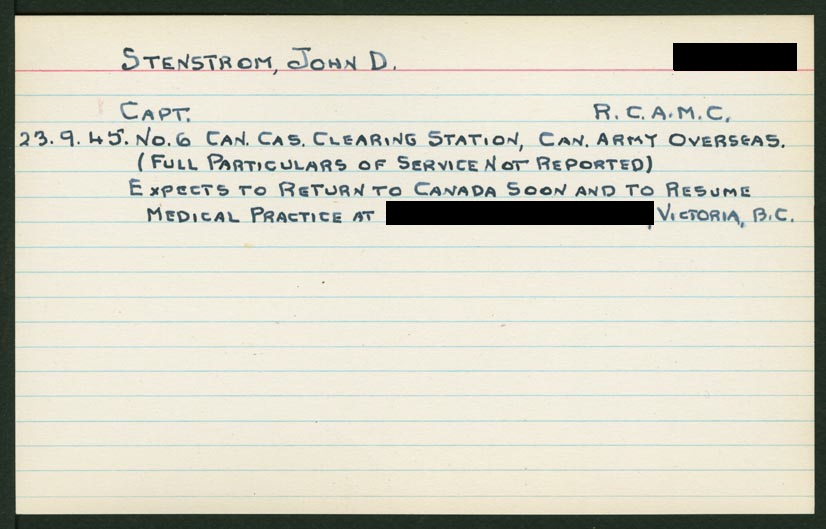 STENSTROM, JOHN D.
CAPT. R.C.A.M.C.
23.9.45. NO.6 CAN. CAS. CLEARING STATION, CAN. ARMY OVERSEAS.
(FULL PARTICULARS OF SERVICE NOT REPORTED)
EXPECTS TO RETURN TO CANADA SOON AND TO RESUME
MEDICAL PRACTICE AT , VICTORIA, B.C.